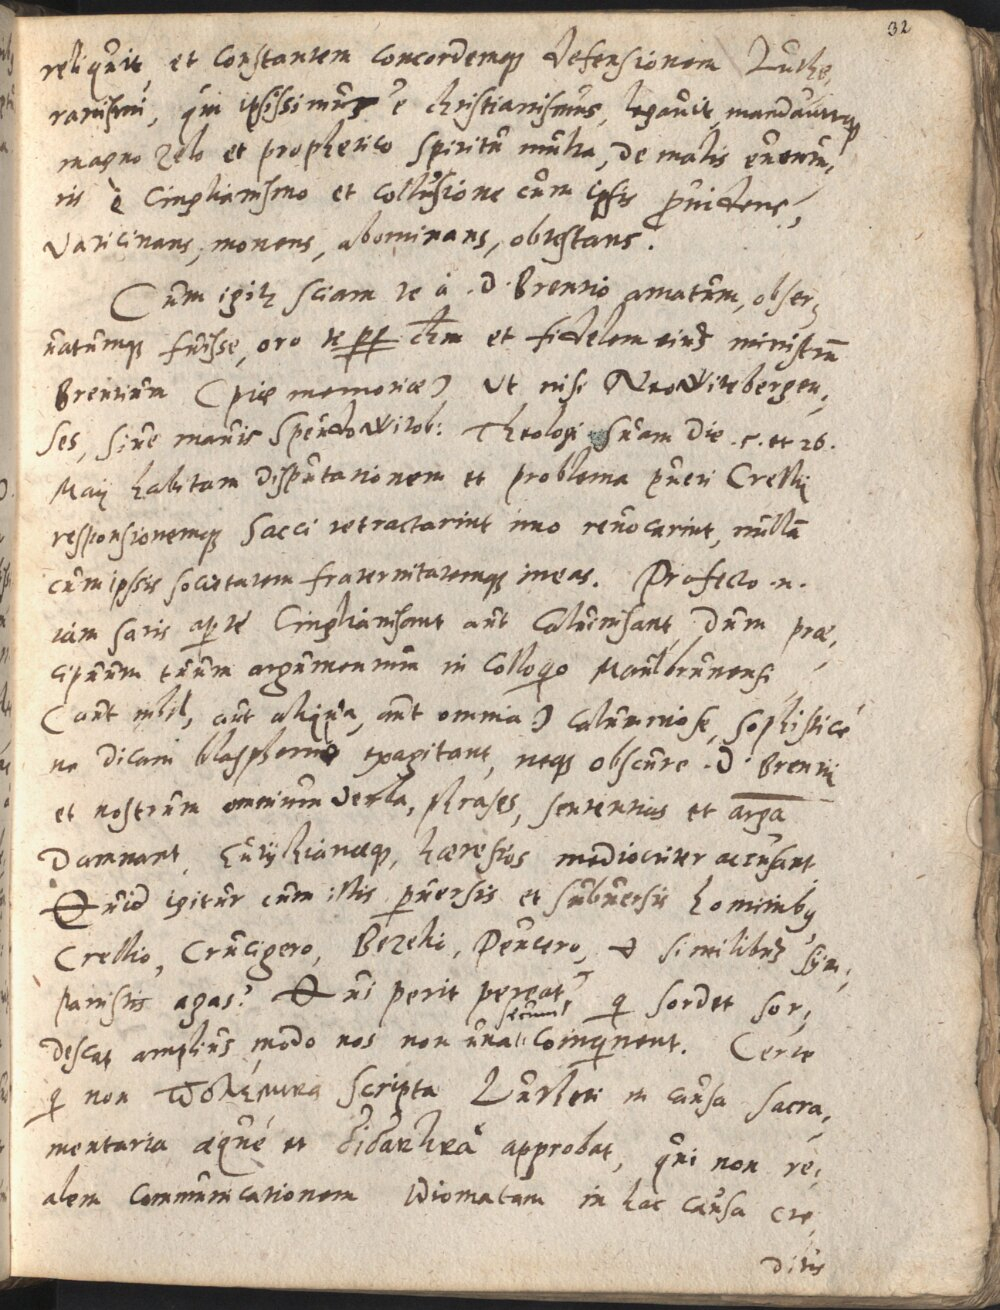 32
reliquit, et constantem concordemq; defensionem Luthe,
ranismi, qui ipsissimus e christianismus, legauit, mandauitq;
magno zelo et prophetico spiritu multa, de malis euentu,
ris è Cinglianismo et collusione cum ipsis p̃uidens,
Vaticinans, monens, abominans, obtestans.
Cum igit sciam te à .D. Brentio amatum, obser,
uatumq; fuisse, oro te chm et fidelem eius ministrũ
Brentium (piæ memoriæ) Vt, nisi NeoWitebergen,
ses, siue mauis SpeudoWiteb: Theologi suam die .5. et 26.
Maij habitam disputationem et problema pueri Crellij
responsionemq; Sacci retractarint imo reuocarint, nullã
cum ipsis societatem fraternitatemq; ineas. Profecto .n.
iam satis apte Cinglianisant aut Caluinisant, Dum præ,
cipuum tuum argumentum in Colloqio Maulbrunensi
(aut nihil, aut aliqua, aut omnia) calumniose, sophisticè
ne dicam blasphemè exagitant, neq; obscure .D. Brentij
et nostrum omnium verba, phrases, sententias et arga
Damnant, Eutychianæq; hæresios mediocriter accusant
Quid igitur cum illis peruersis et subuersis hominib9
Crellio, Crucigero, Bezelio, Peucero, & similibus sym,
panistis agas? Qui perit pereat, q sordet sor,
descat amplius, modo nos non una secum coinquinent. Certe
q non πολεμικα scripta Lutheri in causa sacra,
mentaria æquè et διδακτικὰ approbat, qui non re,
alem communicationem Idiomatum in hac causa cre,
ditis